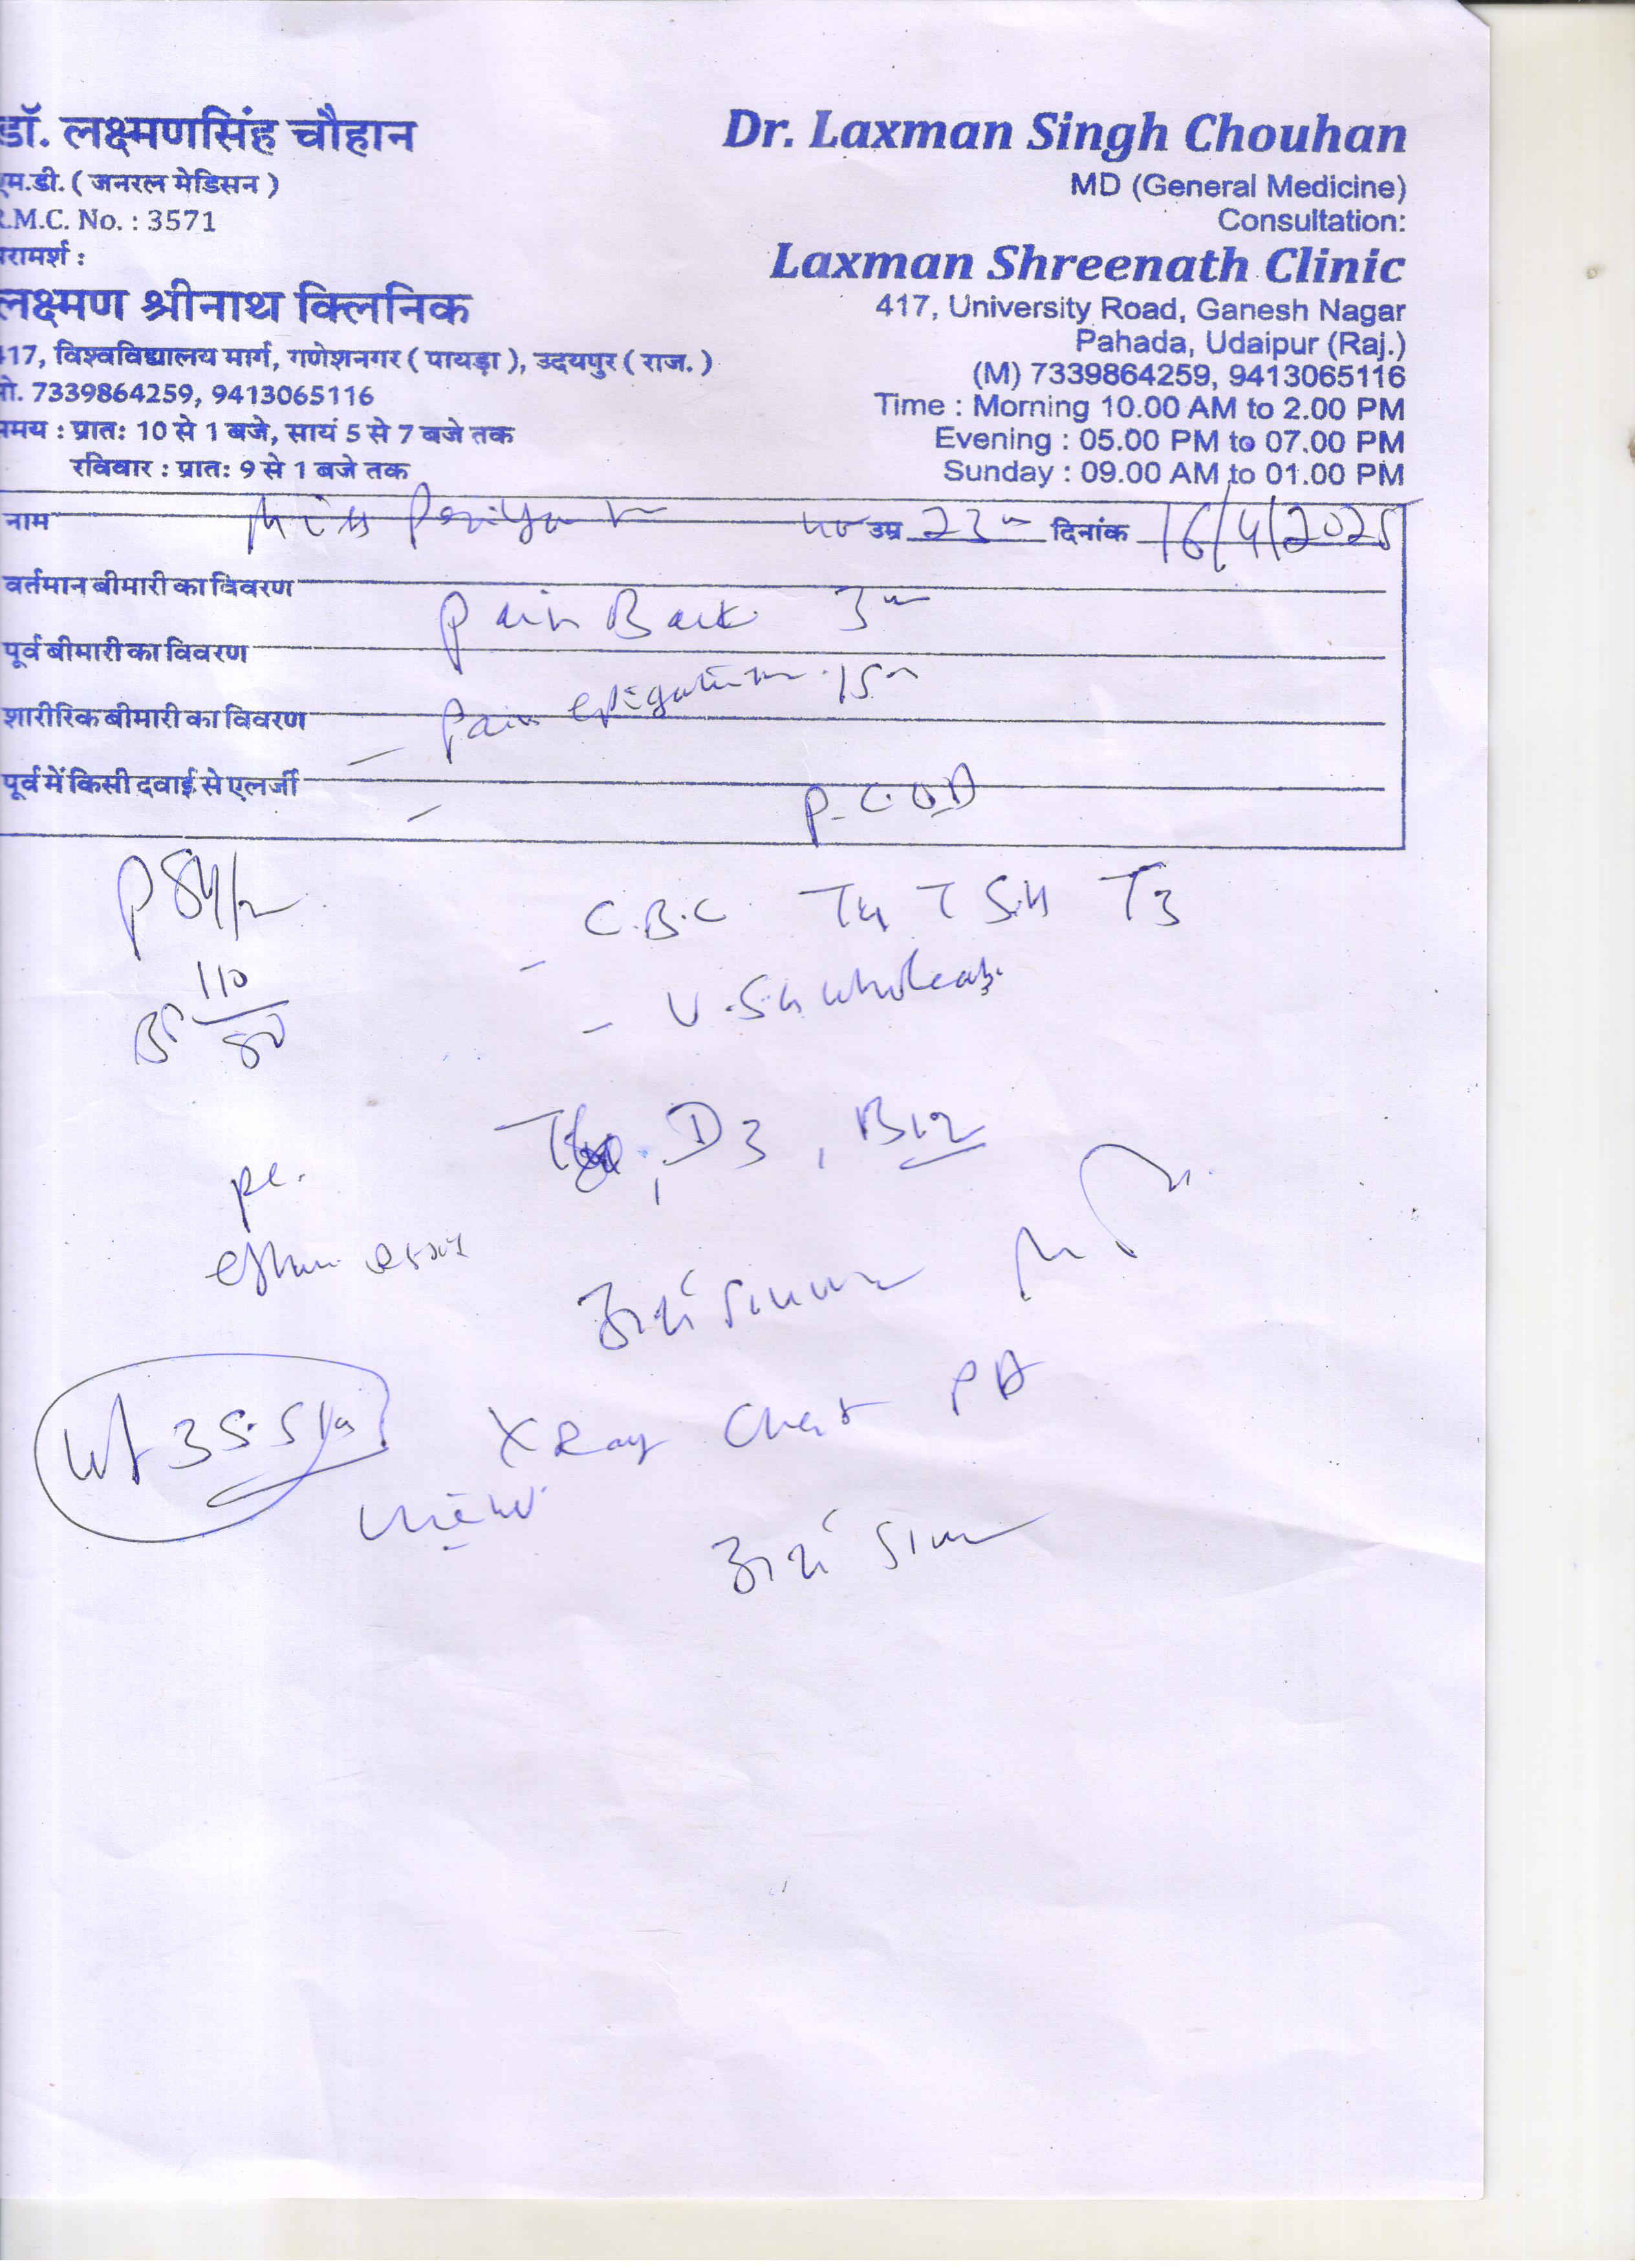 डॉ. लक्ष्मणसिंह चौहान
एम.डी. ( जनरल मेडिसन )
R.M.C. No. : 3571
परामर्श :
लक्ष्मण श्रीनाथ क्लिनिक
417, विश्वविद्यालय मार्ग, गणेशनगर ( पायड़ा ), उदयपुर ( राज. )
मो. 7339864259, 9413065116
समय : प्रातः 10 से 1 बजे, सायं 5 से 7 बजे तक
रविवार : प्रातः 9 से 1 बजे तक
Dr. Laxman Singh Chouhan
MD (General Medicine)
Consultation:
Laxman Shreenath Clinic
417, University Road, Ganesh Nagar
Pahada, Udaipur (Raj.)
(M) 7339864259, 9413065116
Time : Morning 10.00 AM to 2.00 PM
Evening : 05.00 PM to 07.00 PM
Sunday : 09.00 AM to 01.00 PM
नाम Miss उम्र 23 दिनांक 16/4/2025
वर्तमान बीमारी का विवरण
Pain Back 3
पूर्व बीमारी का विवरण
शारीरिक बीमारी का विवरण - Pain 15
पूर्व में किसी दवाई से एलर्जी - P.C.O.D
P 84/m
C.B.C T4 TSH T3
BP 110/80
D3, B12
Wt 35.5 kg
X Ray Chest PA
View